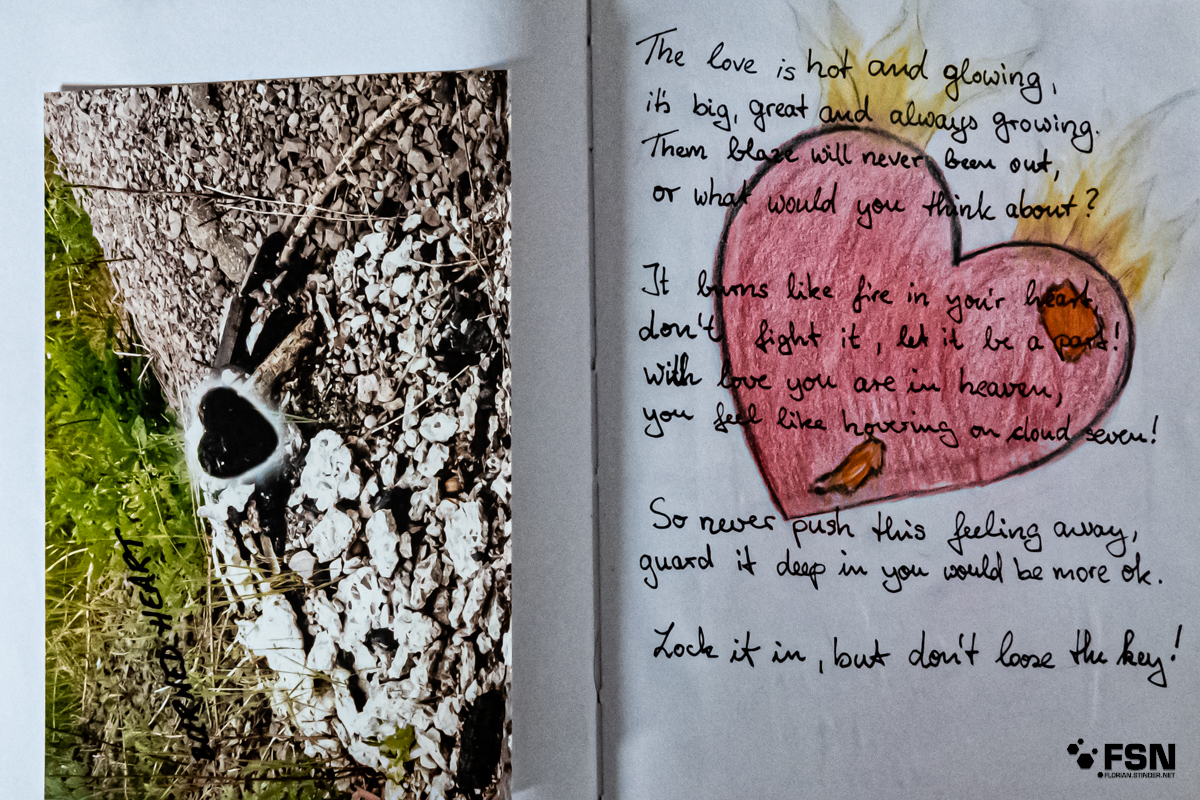 BURNED HEART
The love is hot and glowing,
it's big, great and always growing.
Them blaze will never been out,
or what would you think about?
It burns like fire in you'r heart,
don't fight it, let it be a part!
With love you are in heaven,
you feel like hovering on cloud seven!
So never push this feeling away,
guard it deep in you would be more ok.
Lock it in, but don't loose the key!
FSN
FLORIAN.STINDER.NET